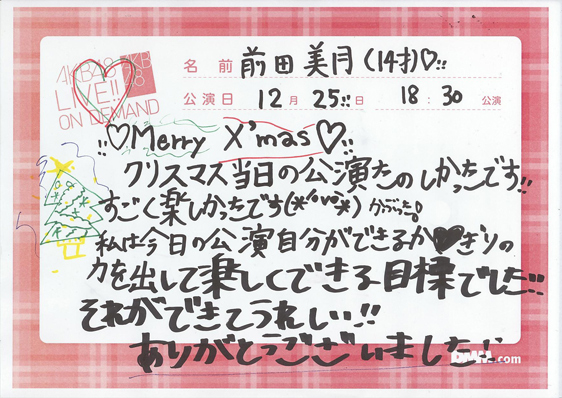 AKB48
LIVE!!
ON DEMAND
AKB
48
名前 前田美月(14才)♡!!
公演日 12月25!!日 18:30 公演
!!♡Merry X'mas♡!!
クリスマス当日の公演たのしかったです!!
すごく楽しかったです(*´ω`*)かぶった。
私は今日の公演自分ができるか♥ぎりの
力を出して楽しくできる目標でした!!
それができてうれしい!!
ありがとうございました!!
DMM.com